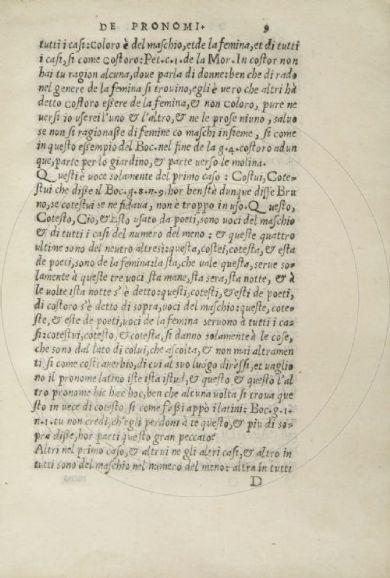 DE PRONOMI. 9
tutti i casi: Coloro è del maschio, et de la femina, et di tutti
i casi, si come costoro: Pet. c. 1. de la Mor. In costor non
hai tu ragion alcuna, doue parla di donne: ben che di rado
nel genere de la femina si trouino, egli è vero che altri hà
detto costoro essere de la femina, & non coloro, pure ne
versi io vserei l'uno & l'altro, & ne le prose niuno, saluo
se non si ragionasse di femine co maschi insieme, si come
in questo essempio del Boc. nel fine de la g. 4. costoro adun
que, parte per lo giardino, & parte verso le molina.
Questi è voce solamente del primo caso: Costui, Cote-
stui che disse il Boc. g. 8. n. 9. hor ben stè dunque disse Bru
no, se cotestui se fidaua, non è troppo in vso. Questo,
Cotesto, Cio, & Esto vsato da poeti, sono voci del maschio
& di tutti i casi del numero del meno: & queste quattro
ultime sono del neutro altresi: questa, costei, cotesta, & esta
de poeti, sono de la femina: la sta, che vale questa, serue so-
lamente à queste tre voci sta mane, sta sera, sta notte, & à
le volte ista notte s'è detto: questi, cotesti, & esti de poeti,
di costoro s'è detto di sopra, voci del maschio: queste, cote-
ste, & este de poeti, voci de la femina seruono à tutti i ca-
si: cotestui, cotesto, & cotesta, si danno solamente à le cose,
che sono dal lato di colui, che ascolta, & non mai altramen
ti si come costi auerbio, di cui al suo luogo dirèssi, et vaglio
no il pronome latino iste ista istud, & questo & questo l'al
tro pronome hic haec hoc, ben che alcuna volta si troua que
sto in vece di cotesto si come fossi appò i latini: Boc. g. 1.
n. 1. tu non credi, ch'egli perdoni à te questo, & piu di so-
pra disse, hor parti questo gran peccato?
Altri nel primo caso, & altrui ne gli altri casi, & altro in
tutti sono del maschio nel numero del meno: altra in tutti
D